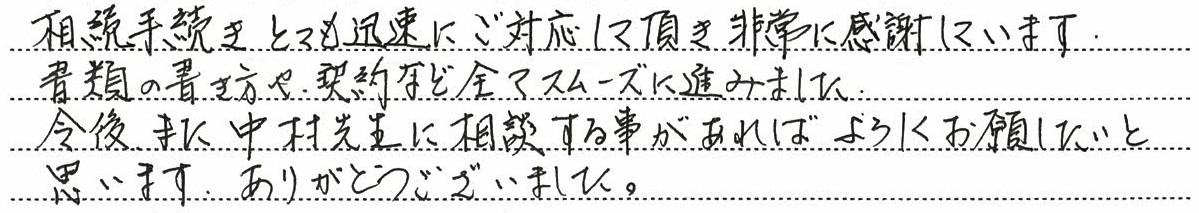 相続手続き とても迅速にご対応して頂き 非常に感謝しています.
書類の書き方や.契約など全てスムーズに進みました.
今後 また 中村先生に相談する事があれば よろしくお願したいと
思います. ありがとうございました。